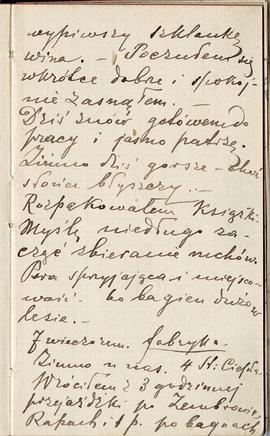 wypiwszy szklankę
wina. – Poczułem się
wkrótce dobrze i spokoj-
nie zasnąłem. –
Dziś znów gotówem do
pracy i jasno patrzę.
Zimno dziś gorsze – choć
słońce błyszczy. –
Rozpakowałem książki.
Myślę niedługo za-
cząć zbieranie mchów.
Pora sprzyjająca i miejsco-
wość – bo bagien dużo w
lesie. –
7 wieczorem. Fabryka.
Zimno u nas. 4 st. Ciepła.
Wróciłem z 3 godzinnej
przejażdżki po Zembrowie,
Rapach i t p. po bagnach